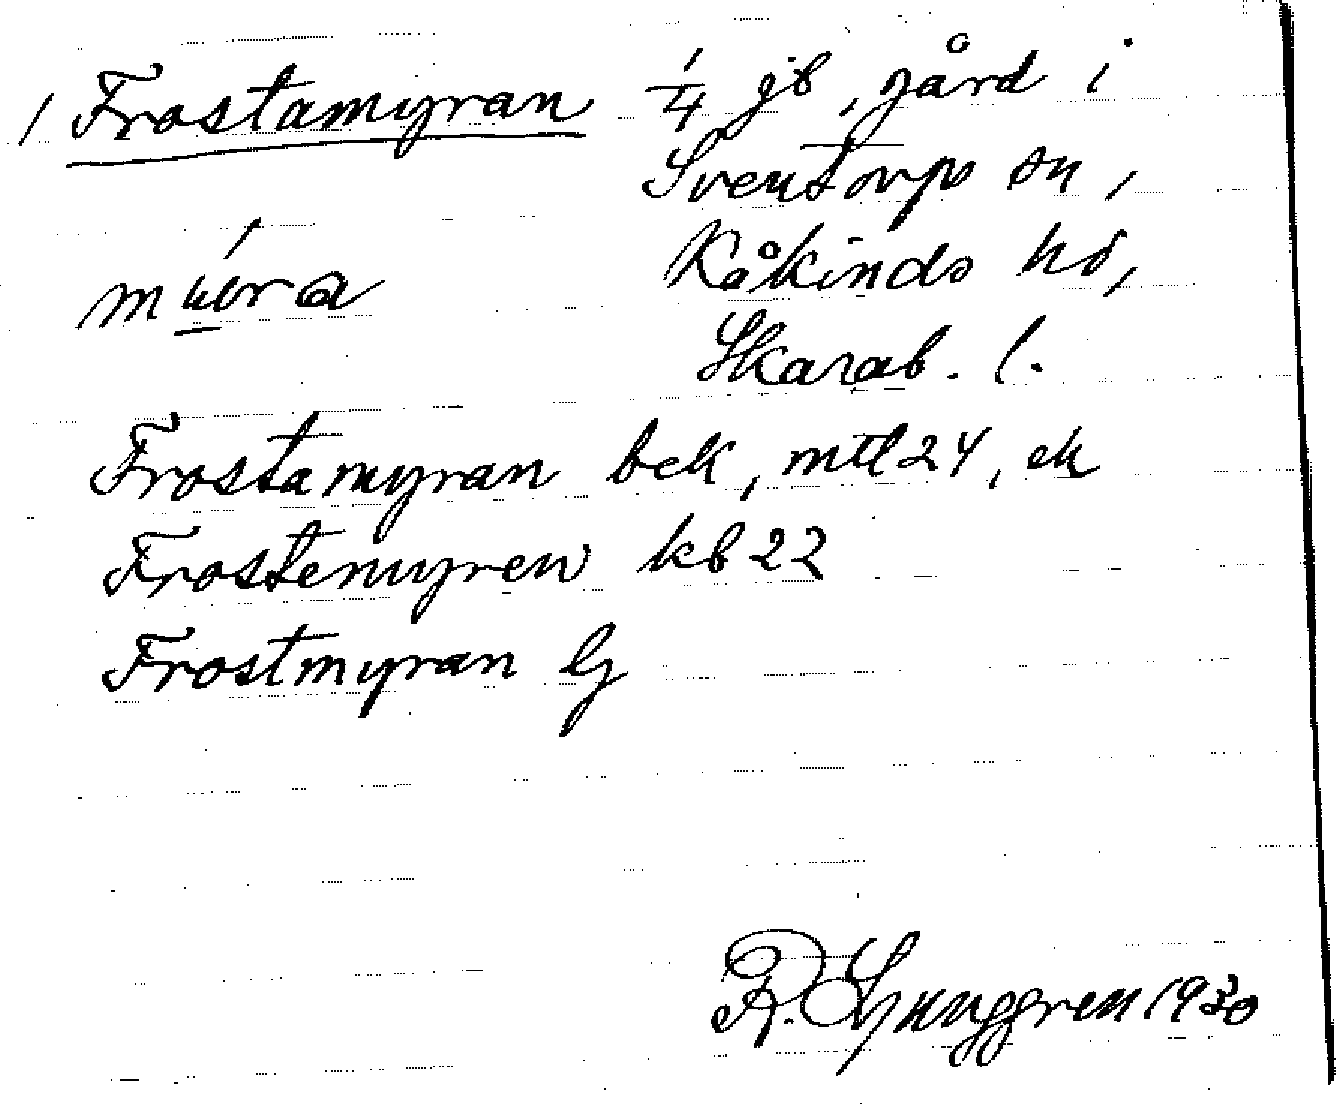 / Frostamyran 1/4 jb, gård i
Sventorps sn,
múöra Kåkinds hd,
Skarab. l.
Frostamyran bek, mtl 24, ek
Frostemyren kb 22
Frostmyran G
R. Ljunggren 1930